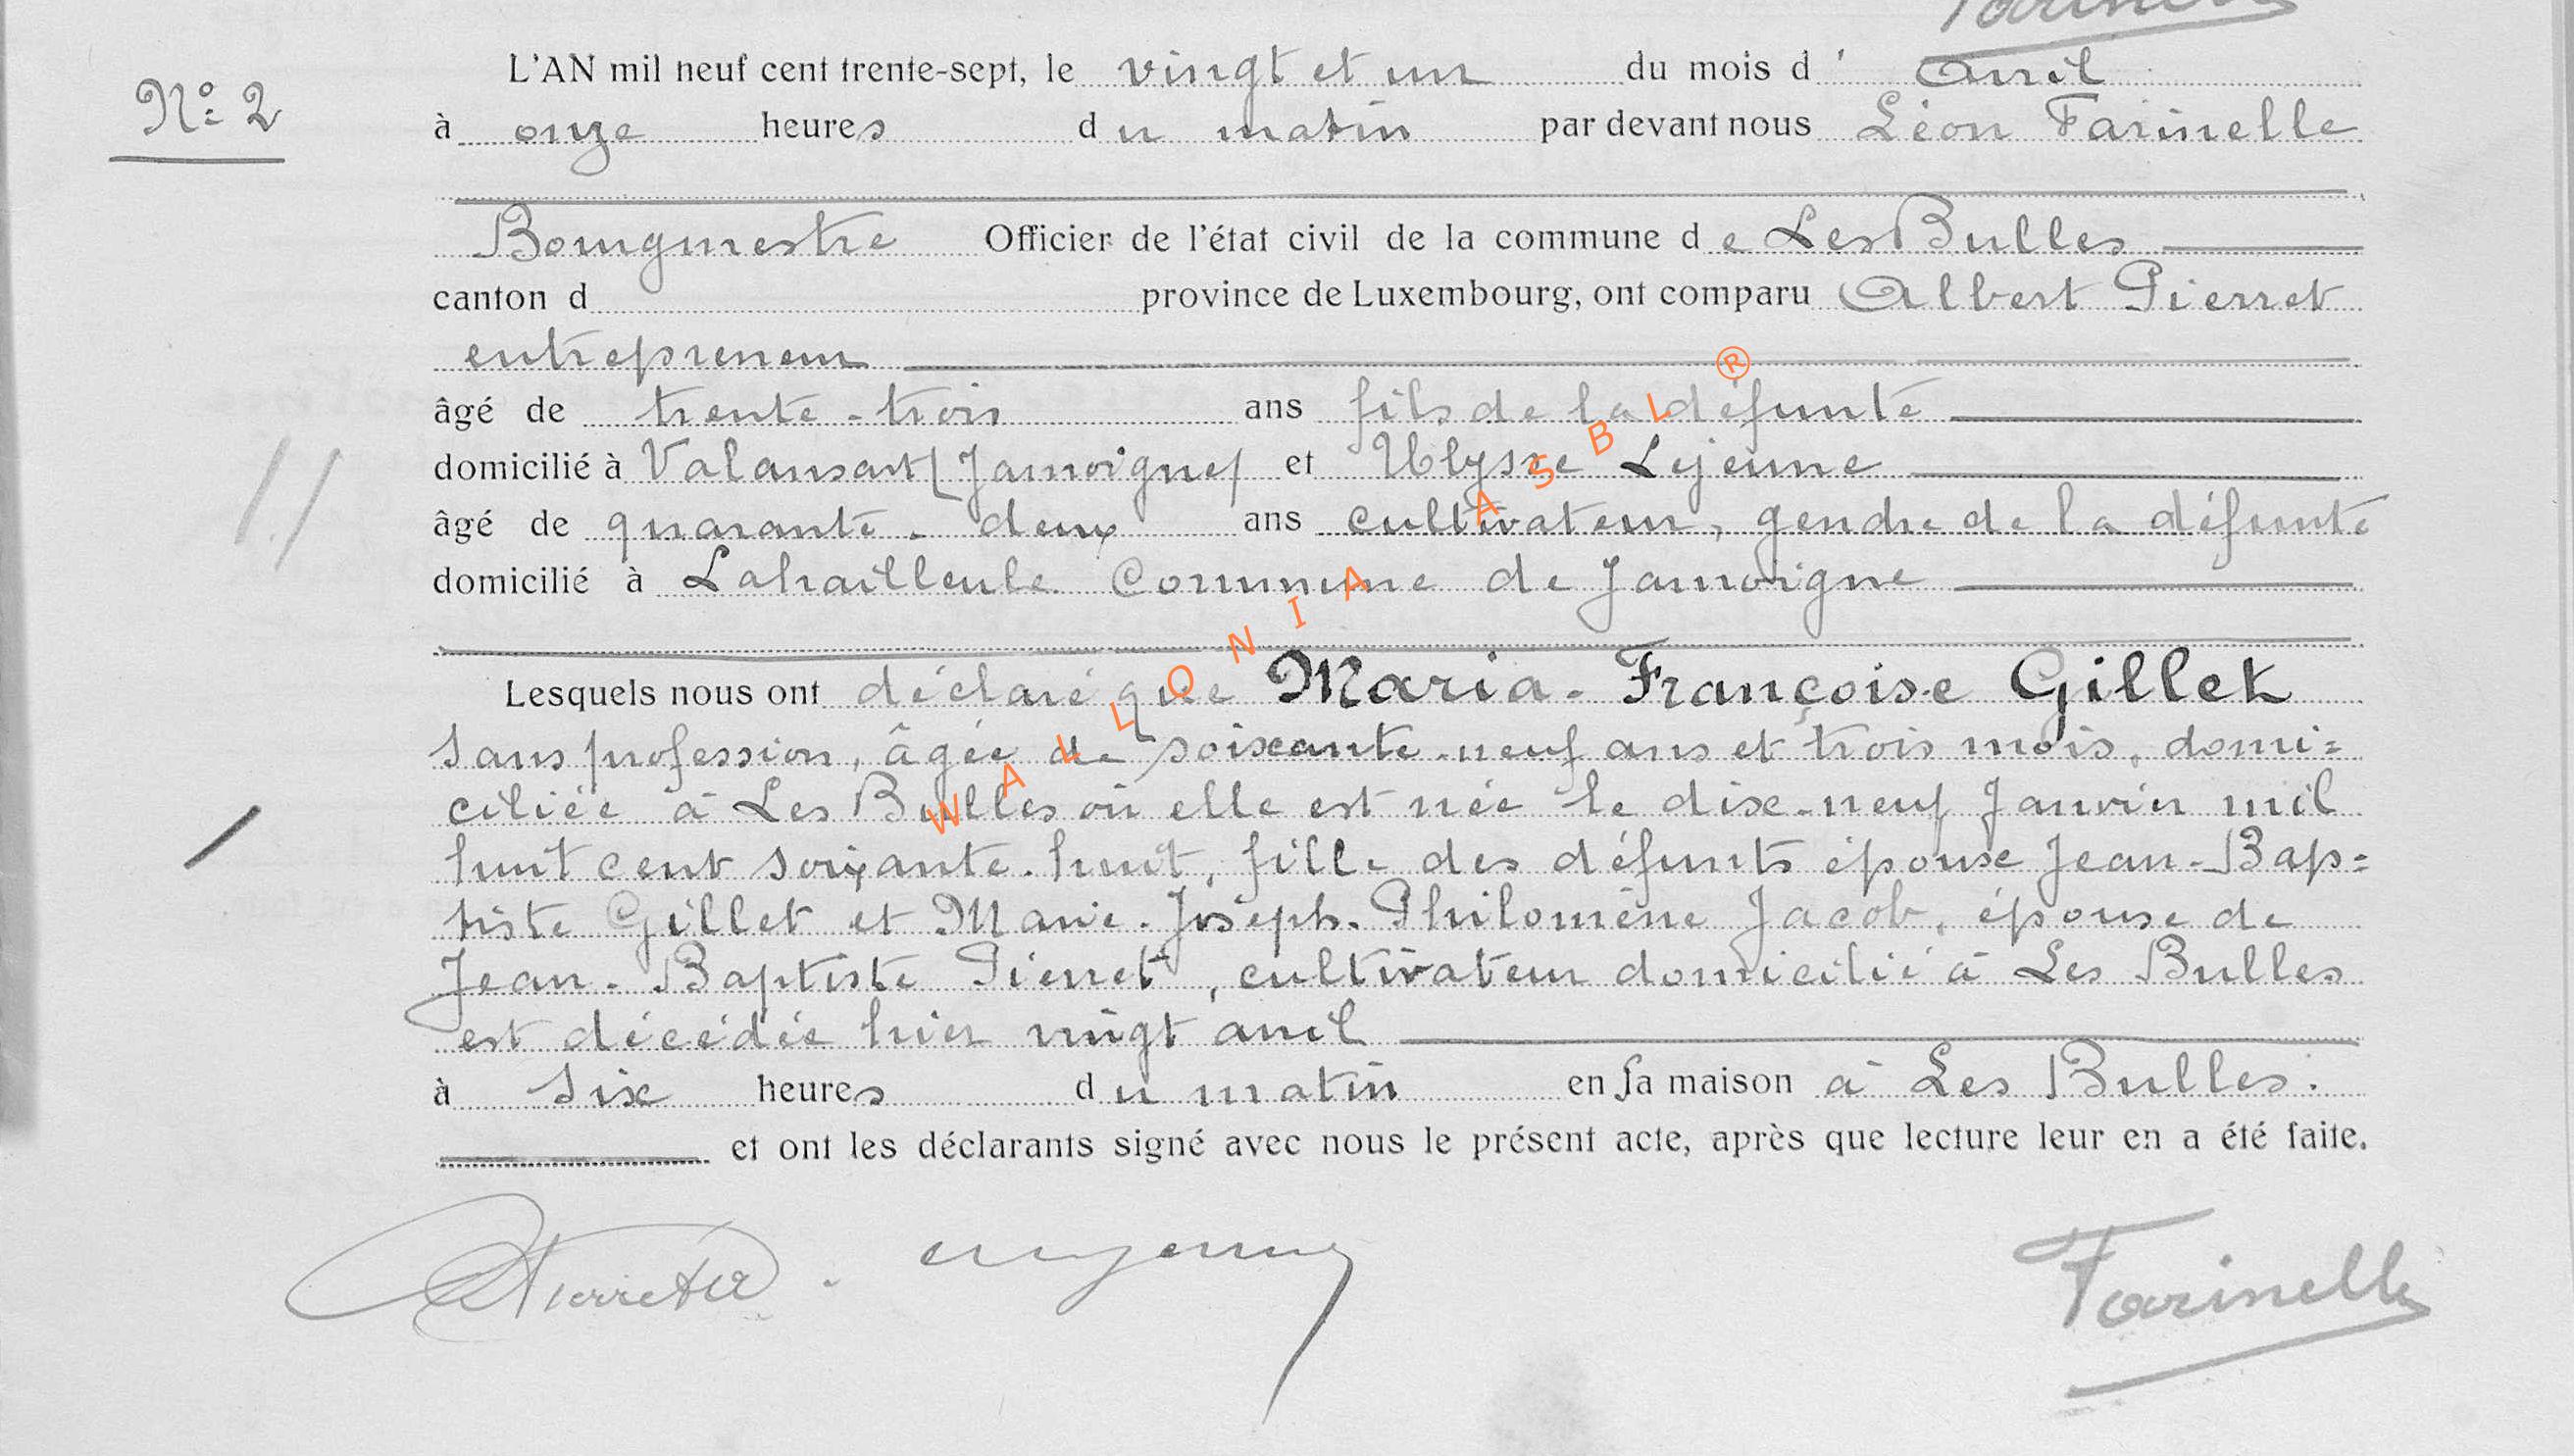 Farinelle
L'AN mil neuf cent trente-sept, le vingt et un du mois d' Avril
N° 2
à onze heures du matin par devant nous Léon Farinelle
Bourgmestre Officier de l'état civil de la commune de Les Bulles
canton d province de Luxembourg, ont comparu Albert Pierret
entrepreneur
âgé de trente-trois ans fils de la défunte
domicilié à Valansart (Jamoigne) et Ulysse Lejeune
âgé de quarante-deux ans cultivateur, gendre de la défunte
domicilié à Lahailleule Commune de Jamoigne
Lesquels nous ont déclaré que Maria-Françoise Gillet
sans profession, âgée de soixante-neuf ans et trois mois, domi=
ciliée à Les Bulles où elle est née le dix-neuf Janvier mil
huit cent soixante-huit, fille des défunts époux Jean-Bap=
tiste Gillet et Marie-Joseph-Philomène Jacob, épouse de
Jean-Baptiste Pierret, cultivateur domicilié à Les Bulles
est décédée hier vingt avril
à six heures du matin en sa maison à Les Bulles.
et ont les déclarants signé avec nous le présent acte, après que lecture leur en a été faite.
Farinelle
WALLONIA ASBL ®